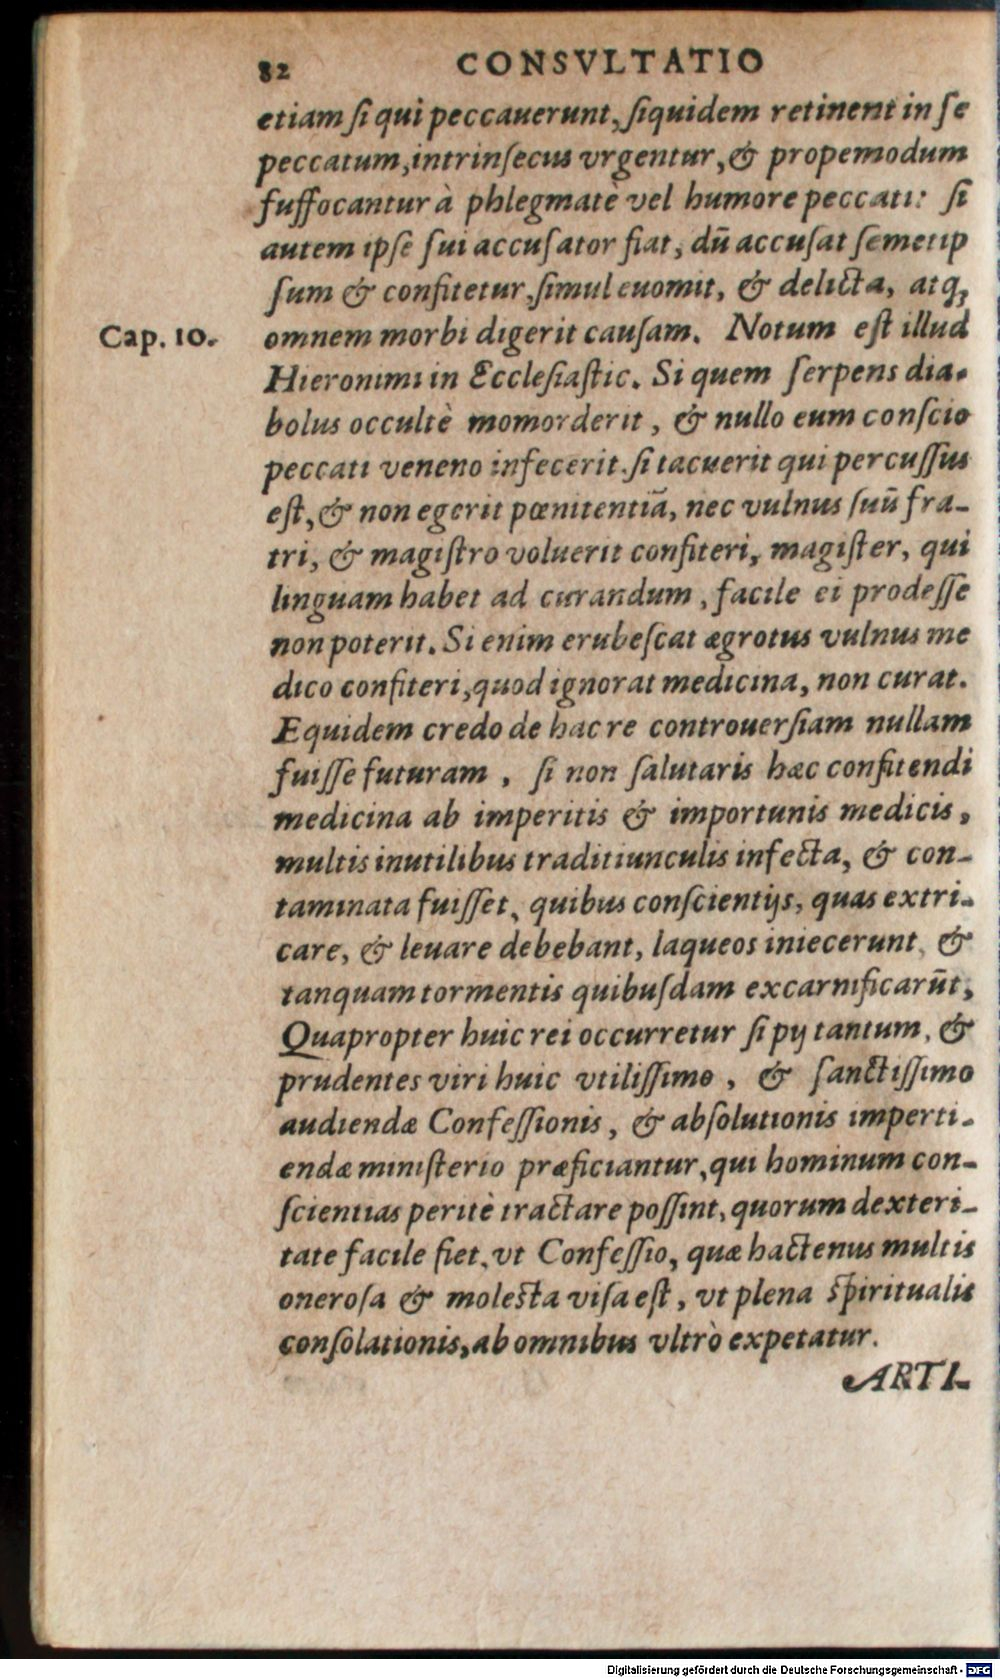 82 CONSVLTATIO
etiam ſi qui peccauerunt, ſiquidem retinent in ſe
peccatum, intrinſecus vrgentur, & propemodum
fuffocantur à phlegmatè vel humore peccati: ſi
autem ipſe ſui accuſator fiat, dū accuſat ſemetip
ſum & confitetur, ſimul euomit, & delicta, atq;
Cap. 10. omnem morbi digerit cauſam. Notum eſt illud
Hieronimi in Eccleſiaſtic. Si quem ſerpens dia-
bolus occultè momorderit, & nullo eum conſcio
peccati veneno infecerit. ſi tacuerit qui percuſſus
eſt, & non egerit pœnitentiā, nec vulnus ſuū fra-
tri, & magiſtro voluerit confiteri, magiſter, qui
linguam habet ad curandum, facile ei prodeſſe
non poterit. Si enim erubeſcat ægrotus vulnus me
dico confiteri, quod ignorat medicina, non curat.
Equidem credo de hac re controuerſiam nullam
fuiſſe futuram, ſi non ſalutaris hæc confitendi
medicina ab imperitis & importunis medicis,
multis inutilibus traditiunculis infecta, & con-
taminata fuiſſet, quibus conſcientijs, quas extri-
care, & leuare debebant, laqueos iniecerunt, &
tanquam tormentis quibuſdam excarnificarūt,
Quapropter huic rei occurretur ſi pij tantum, &
prudentes viri huic vtiliſſimo, & ſanctiſſimo
audiendæ Confeſſionis, & abſolutionis imperti-
endæ miniſterio præficiantur, qui hominum con-
ſcientias peritè tractare poſſint, quorum dexteri-
tate facile fiet, vt Confeſſio, quæ hactenus multis
oneroſa & moleſta viſa eſt, vt plena ſpiritualis
conſolationis, ab omnibus vltrò expetatur.
ARTI-
Digitalisierung gefördert durch die Deutsche Forschungsgemeinschaft - DFG